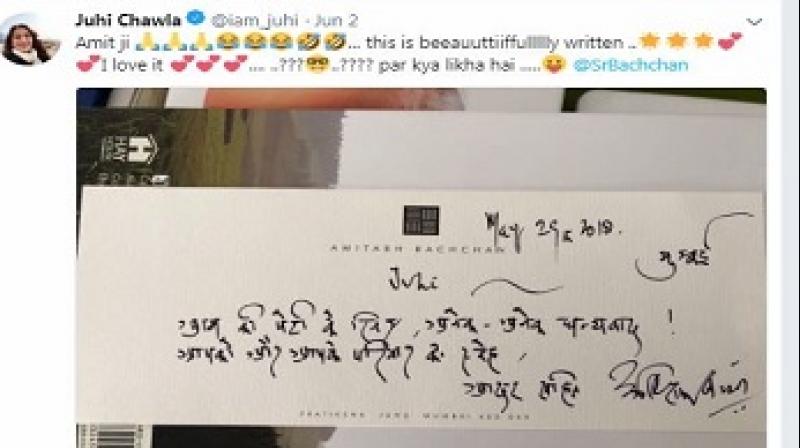 Juhi Chawla @iam_juhi · Jun 2
Amit ji 🙏🙏🙏😂😂😂🤣🤣... this is beeauuttiiffullllllly written ..⭐⭐⭐💕
💕I love it 💕💕💕.... ..???🤓..???? par kya likha hai .....😛 @SrBachchan
HAY HOUSE
May 29, 2018.
AMITABH BACHCHAN
मुम्बई
Juhi
आम की पेटी के लिए, अनेक - अनेक धन्यवाद !
आपको और आपके परिवार को स्नेह,
आदर सहित
PRATIKSHA JUHU MUMBAI 400 049